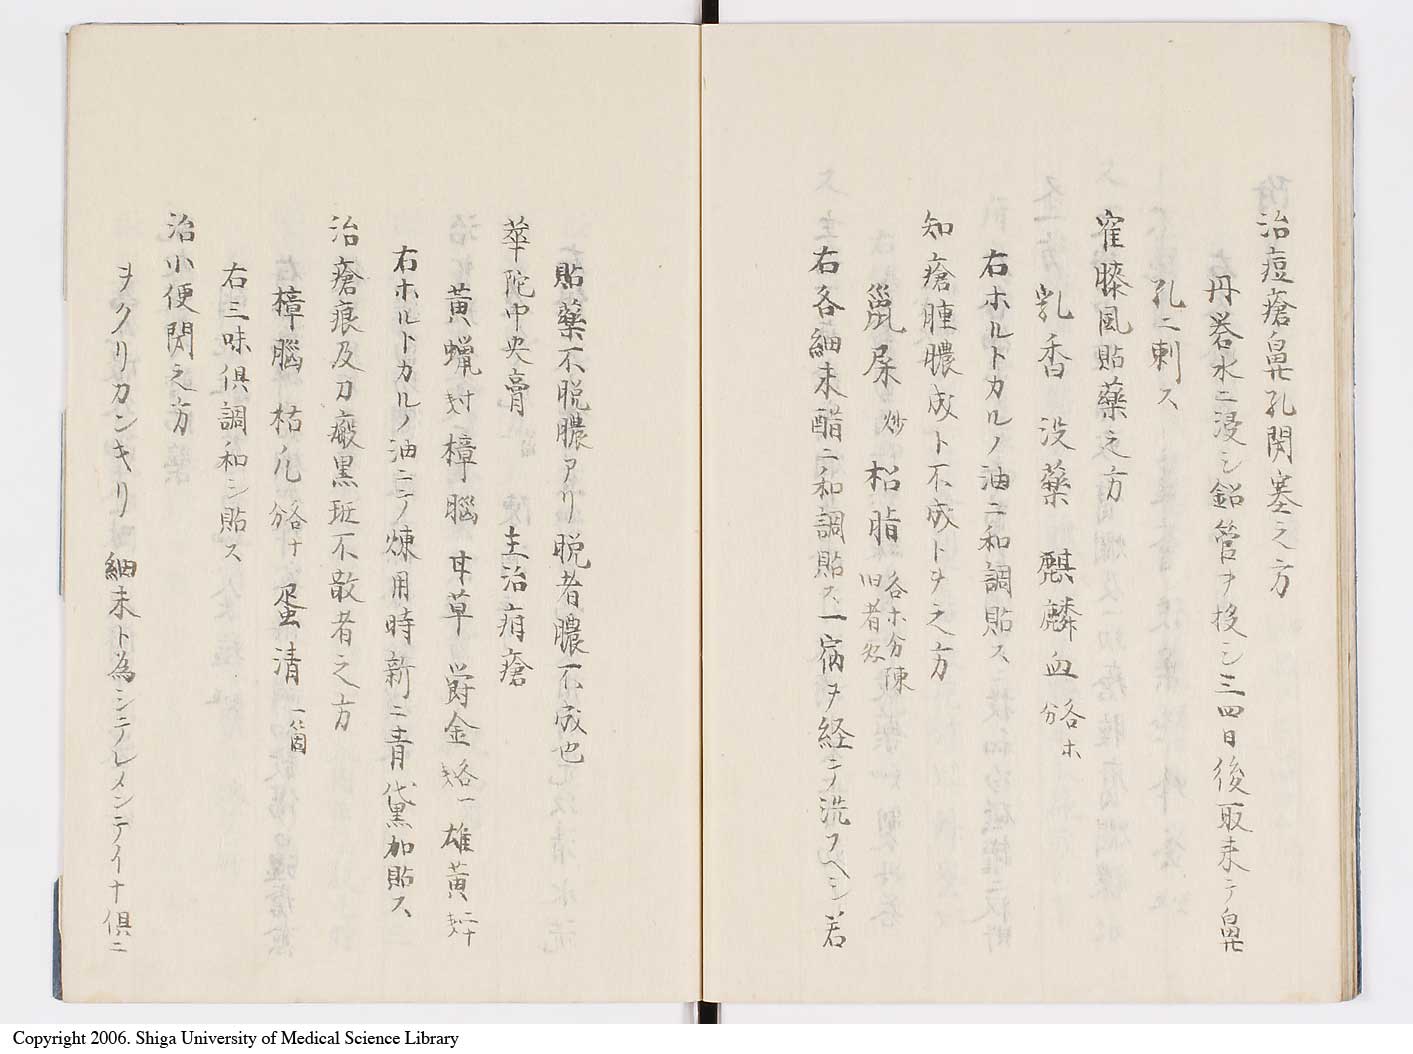 治痘瘡鼻孔閇塞之方
丹礬水ニ浸シ鉛管ヲ挍シ三四日後取来テ鼻
孔ニ刺ス
寉膝風貼藥之方
乳香 没藥 麒麟血 各ホ分
右ホルトカルノ油ニ和調貼ス
知瘡腫膿成ト不成トヲ之方
鼠屎 炒 枩脂 各ホ分 陳旧者
右各細末醋ニ和調貼ス一宿ヲ経テ洗フヘシ若
貼藥不脱膿アリ脱者膿不成也
華陀中央膏 主治瘡
黄蝋 樟脳 甘草 欝金 雄黄
右ホルトカルノ油ニテ煉用時新ニ青黛加貼ス
治瘡痕及刀瘢黒斑不散者之方
樟脳 枯凡 各十分 蛋清 一箇
右三味倶調和シ貼ス
治小便閇之方
ヲクリカンキリ 細末ト為シテレメンテイナ倶ニ
Copyright 2006. Shiga University of Medical Science Library